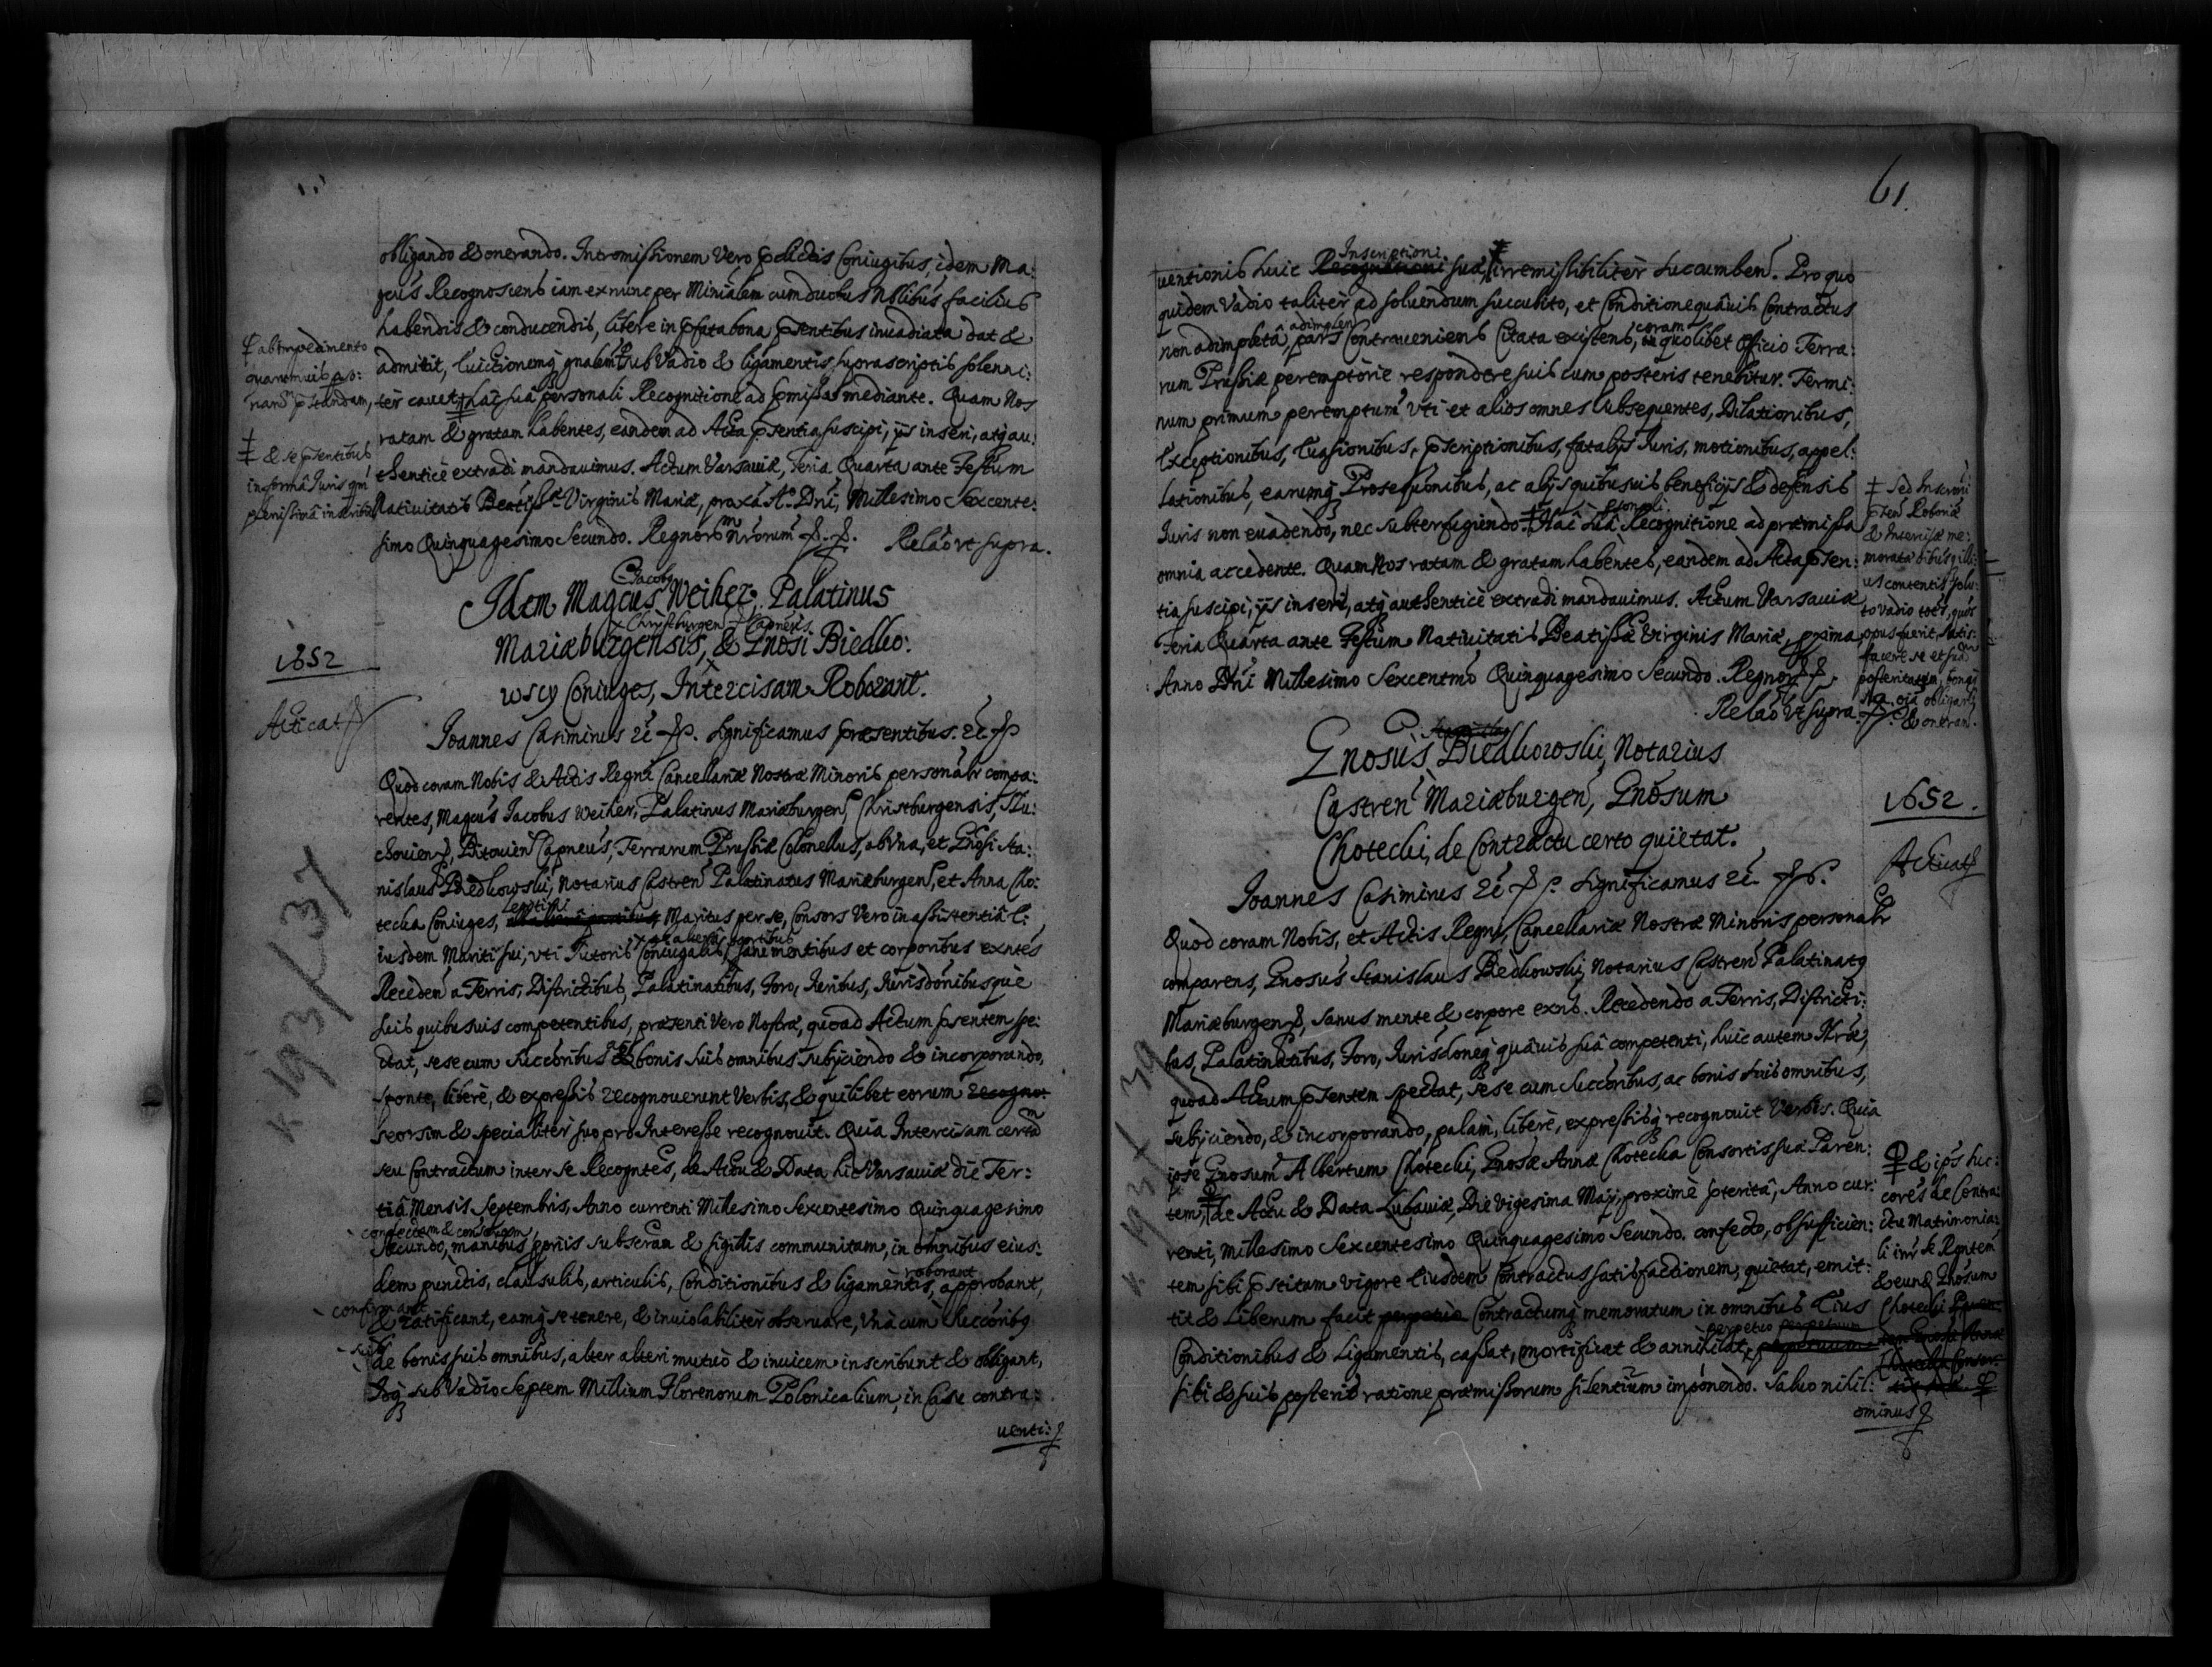 obligando & onerando. Intromissionem Vero pdictis Coniugibus, idem Ma:
gcus Recognoscens iam ex nunc per Minialem cum duobus Nblibus facilius
habendis & conducendis, libere in pfata bona psentibus inuadiata dat &
admittit, Euictionemq gnalem sub Vadio & ligamentis suprascriptis solenni:
ter cauet, hac sua personali Recognitione ad pmissa mediante. Quam Nos
ratam & gratam habentes, eandem ad Acta psentia suscipi, ijs inseri, atq au:
thentice extradi mandauimus. Actum Varsauiæ, Feria Quarta ante Festum
Natiuitatis Beatissæ Virginis Mariæ, proxa Ao Dni, Millesimo Sexcente:
simo Quinquagesimo Secundo. Regnorm nrorum
Relao vt supra.
ab Impedimento
quantumuis
pstandam,
& se psentibus
in forma Iuris
plenissima inscribit
Jacobus
Idem Magcus Weiher, Palatinus
Christburgen Capneus
Mariæburgensis, & Gnosi Biedko:
wscy Coniuges, Intercisam Roborant.
1652
Acticat
Joannes Casimirus &c Significamus præsentibus. &c
Quod coram Nobis & Actis Regni Cancellariæ Nostræ Minoris personalr compa:
rentes, Magcus Jacobus Weiher, Palatinus Mariæburgen, Christburgensis, Slu:
chouien, Bitouien Capneus, Terrarum Prussiæ Colonellus, ab vna, et Gnosi Sta:
nislaus Biedkowski, Notarius Castren Palatinatus Mariæburgen, et Anna Cho:
tecka Coniuges, Maritus per se, Consors Vero in assistentiâ E:
ab altera partibus
iusdem Mariti sui, vti Tutoris Coniugalis, sani mentibus et corporibus exntes
Receden a Terris, Districtibus, Palatinatibus, Foro, Iuribus, Iurisdonibusque
suis quibusuis competentibus, præsenti Vero Nostræ, quoad Actum psentem spe:
ctat, sese cum Succoribus & bonis suis omnibus subijciendo & incorporando,
sponte, libere, & expressis recognouerunt Verbis, & quilibet eorum recogno:
seorsim & specialiter suo pro Interesse recognouit. Quia Intercisam certam
seu Contractum inter se Recogntes, de Actu & Data hic Varsauiæ die Ter:
tiâ Mensis Septembris, Anno currenti Millesimo Sexcentesimo Quinquagesimo
confectam &
Secundo, manibus ppriis subscrtam & sigillis communitam, in omnibus eius:
roborant
dem punctis, clausulis, articulis, Conditionibus & ligamentis, approbant,
confirmant
& ratificant, eamq se tenere, & inuiolabiliter obseruare, Vna cum Succoribq
suis
de bonis suis omnibus, alter alteri mutuo & inuicem inscribunt & obligant,
Idq sub Vadio Septem Millium Florenorum Polonicalium, in Casu contra:
uenti:
K 193/37
61.
Inscriptioni
uentionis huic Recognitioni suæ, irremissibiliter succumben. Pro quo
quidem Vadio taliter ad soluendum succubito, et Conditione quâuis Contractus
coram
non adimpleta, pars Contraueniens Citata existens, in quolibet Officio Terra:
rum Prussiæ peremptorie respondere suis cum posteris tenebitur. Termi:
num primum peremptum vti et alios omnes subsequentes, Dilationibus,
Exceptionibus, Euasionibus, pscriptionibus, fatalijs Iuris, motionibus, appel:
lationibus, earumq Prosequtionibus, ac alijs quibusuis beneficijs & defensis
psonali
Iuris non euadendo, nec subterfugiendo. Hac sua Recognitione ad præmissa
omnia accedente. Quam Nos ratam & gratam habentes, eandem ad Acta psen:
tia suscipi, ijs inseri, atq authentice extradi mandauimus. Actum Varsauiæ
Feria Quarta ante Festum Natiuitatis Beatissæ Virginis Mariæ, pxima,
Anno Dni Millesimo Sexcentmo Quinquagesimo Secundo. Regnor
Relao vt supra.
Sed Inscrioni
pnti Roboriæ
& Intercisæ me:
moratæ
us contentis solu:
to vadio toties, quoties
opus fuerit, satis:
facere se et suam
posteritatem, bonaq
sua oia obligari
& onerari.
Gnosus Biedkowski, Notarius
Castren Mariæburgen, Gnosum
Chotecki, de Contractu certo quietat.
1652.
Acticat
Joannes Casimirus &c Significamus &c
Quod coram Nobis, et Actis Regni, Cancellariæ Nostræ Minoris personalr
comparens, Gnosus Stanislaus Biedkowski, Notarius Castren Palatinatq
Mariæburgen, sanus mente & corpore exns. Recedendo a Terris, Districti:
bus, Palatinatibus, Foro, Iurisdoneq quâuis suâ competenti, huic autem Nræ,
quoad Actum psentem spectat, sese cum Succoribus, ac bonis suis omnibus,
subijciendo, & incorporando, palam, libere, expressisq recognouit Verbis. Quia
ipse Gnosum Albertum Chotecki, Gnosæ Annæ Chotecka Consortis suæ Paren:
tem, de Actu & Data Lubauiæ, Die Vigesima Maij, proxime pterita, Anno cur:
renti, Millesimo Sexcentesimo Quinquagesimo Secundo. confecto, ob sufficien:
tem sibi pstitam vigore Eiusdem Contractus satisfactionem, quietat, emit:
tit & Liberum facit perpetuo Contractumq memoratum in omnibus Eius
perpetuo perpetuum
Conditionibus & Ligamentis, cassat, mortificat & annihilat,
sibi & suis posteris ratione præmissorum silentium imponendo. Saluo nihil:
ominus
& ips suc:
cores de Contra:
ctu Matrimonia:
li intr se Rgntem
& eund Gnosum
Chotecki
K 193/30